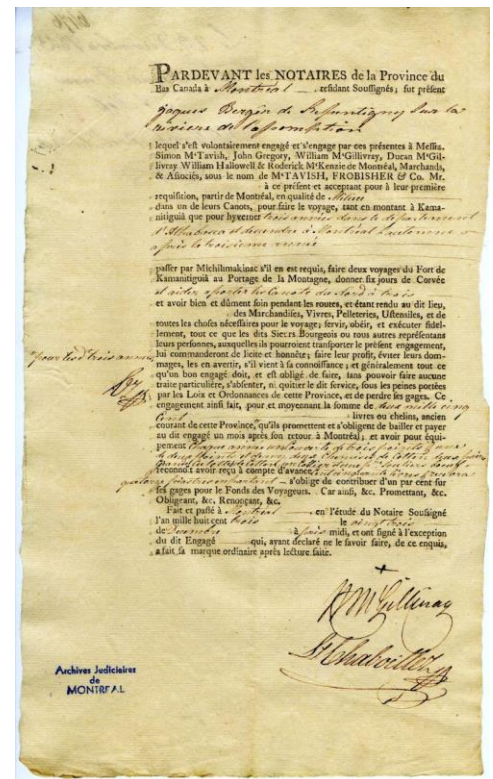 PARDEVANT les NOTAIRES de la Province du
Bas Canada à Montréal residant Soussignés; fut présent
Jaques Bergin de Repentigny Sur la
riviere de l'assomption
lequel s'est volontairement engagé et s'engage par ces présentes à Messrs.
Simon McTavish, John Gregory, William McGillivray, Duncan McGil-
livray William Hallowell & Roderick McKenzie de Montréal, Marchands,
& Associés, sous le nom de McTAVISH, FROBISHER & Co. Mr.
à ce présent et acceptant pour à leur première
requisition, partir de Montréal, en qualité de Milieu
dans un de leurs Canots, pour faire le voyage, tant en montant à Kama-
nitiguiá que pour hyverner trois années dans le departement
d'Athabaca et descendre à Montréal l'automne
après la troisieme année
passer par Michilimakinac s'il en est requis, faire deux voyages du Fort de
Kamanitiguiá au Portage de la Montagne, donner six jours de Corvée
et aider a porter les Canots du Nord à trois
et avoir bien et dûment soin pendant les routes, et étant rendu au dit lieu,
des Marchandises, Vivres, Pelleteries, Ustensiles, et de
toutes les choses nécessaires pour le voyage; servir, obéir, et exécuter fidel-
lement, tout ce que les dits Sieurs Bourgeois ou tous autres représentant
leurs personnes, auxquels ils pourroient transporter le présent engagement,
pour lesd trois années
lui commanderont de licite et honnête; faire leur profit, éviter leurs dom-
mages, les en avertir, s'il vient à sa connoissance; et généralement tout ce
qu'un bon engagé doit, et est obligé de faire, sans pouvoir faire aucune
traite particulière, s'absenter, ni quitter le dit service, sous les peines portées
par les Loix et Ordonnances de cette Province, et de perdre ses gages. Ce
engagement ainsi fait, pour et moyennant la somme de deux mille cinq
Cent livres ou chelins, ancien
courant de cette Province, qu'ils promettent et s'obligent de bailler et payer
au dit engagé un mois après son retour à Montréal; et avoir pour équi-
pement chaque année
de deux points et demi, deux Chemises de Cotton, deux
reconnoît avoir reçu à compte d'avance
s'oblige de contribuer d'un par cent sur
ses gages pour le Fonds des Voyageurs. Car ainsi, &c. Promettant, &c.
Obligeant, &c. Renonçant, &c.
Fait et passé à Montréal en l'étude du Notaire Soussigné
l'an mille huit cent trois le vingt trois
de Decembre à près midi, et ont signé à l'exception
du dit Engagé qui, ayant declaré ne le savoir faire, de ce enquis,
a fait sa marque ordinaire après lecture faite.
+
Wm McGillivray
Ls Chaboillez
Archives Judiciaires
de
MONTREAL